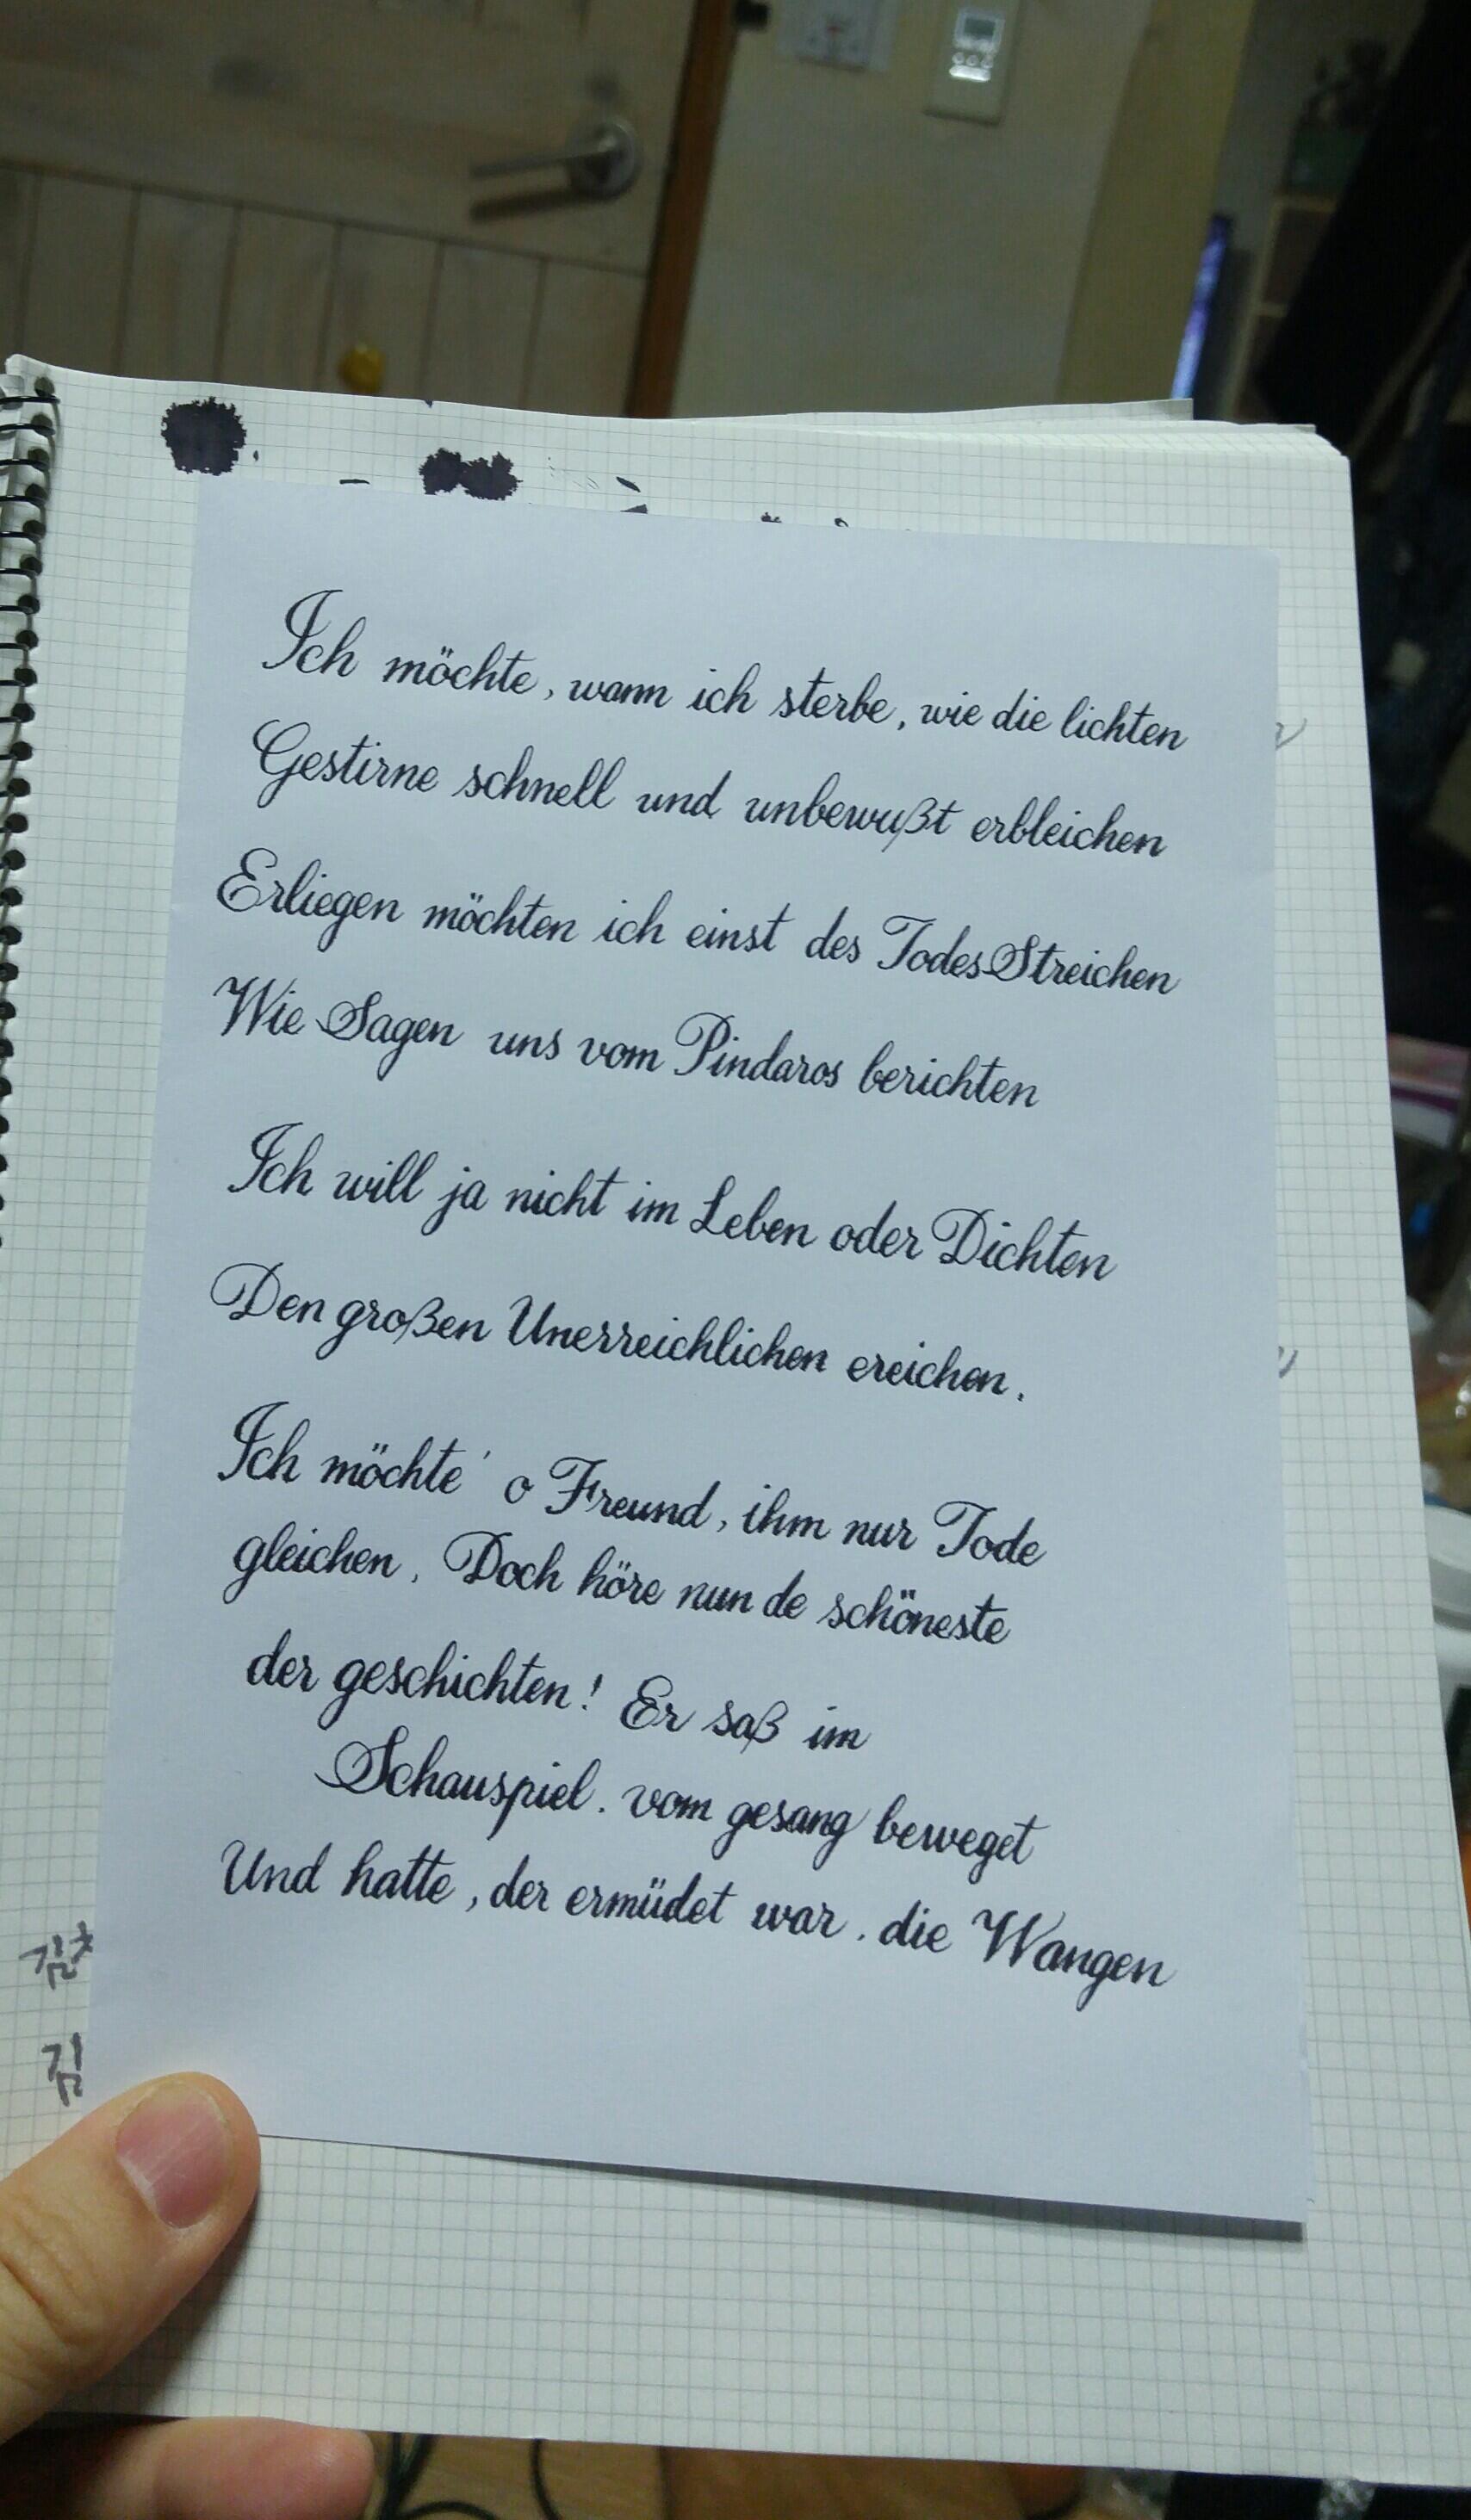 Ich möchte, wann ich sterbe, wie die lichten
Gestirne schnell und unbewußt erbleichen
Erliegen möchten ich einst des TodesStreichen
Wie Sagen uns vom Pindaros berichten
Ich will ja nicht im Leben oder Dichten
Den großen Unerreichlichen ereichen.
Ich möchte' o Freund, ihm nur Tode
gleichen. Doch höre nun de schöneste
der geschichten! Er saß im
Schauspiel. vom gesang beweget
Und hatte, der ermüdet war. die Wangen
김
김